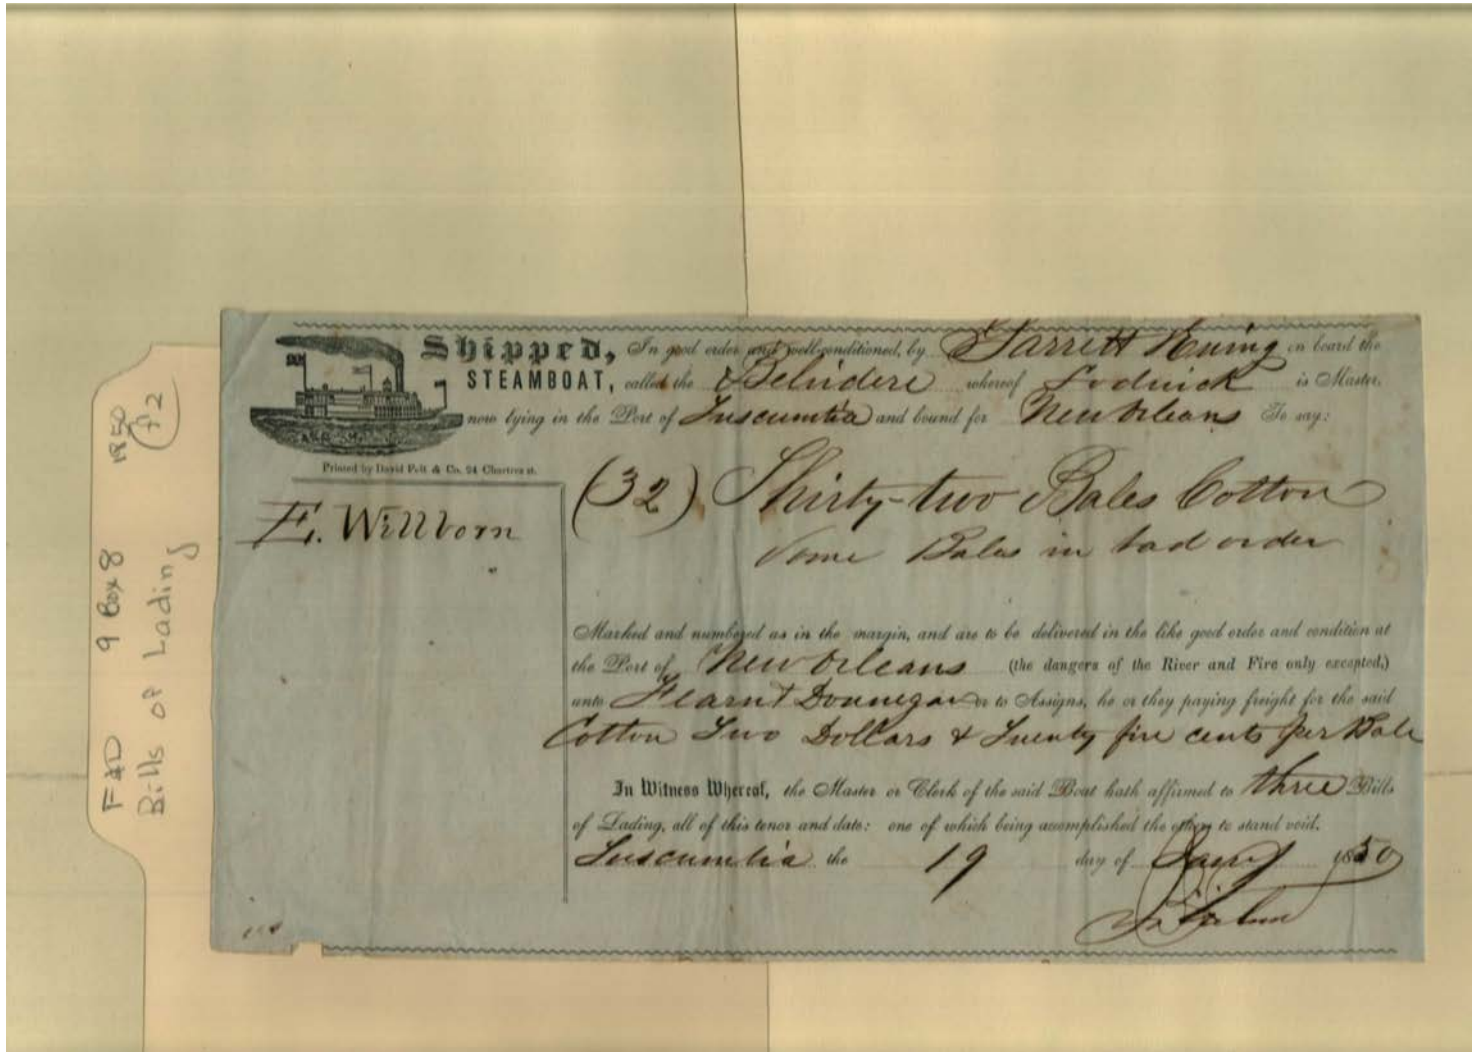 Shipped, In good order and well-conditioned, by Garrett on board the
STEAMBOAT, called the Belvidere whereof is Master,
now lying in the Port of Tuscumbia and bound for New Orleans To say:
Printed by David Felt & Co. 24 Chartres st.
E. Willborn
(32) Thirty-two Bales Cotton
Some Bales in bad order
Marked and numbered as in the margin, and are to be delivered in the like good order and condition at
the Port of New Orleans (the dangers of the River and Fire only excepted,)
unto Fearn & Donnegan or to Assigns, he or they paying freight for the said
Cotton Two Dollars & Twenty five cents per Bale
In Witness Whereof, the Master or Clerk of the said Boat hath affirmed to three Bills
of Lading, all of this tenor and date: one of which being accomplished the others to stand void.
Tuscumbia the 19 day of Jany 1850
F&D 9 Box 8 1850 F2
Bills of Lading